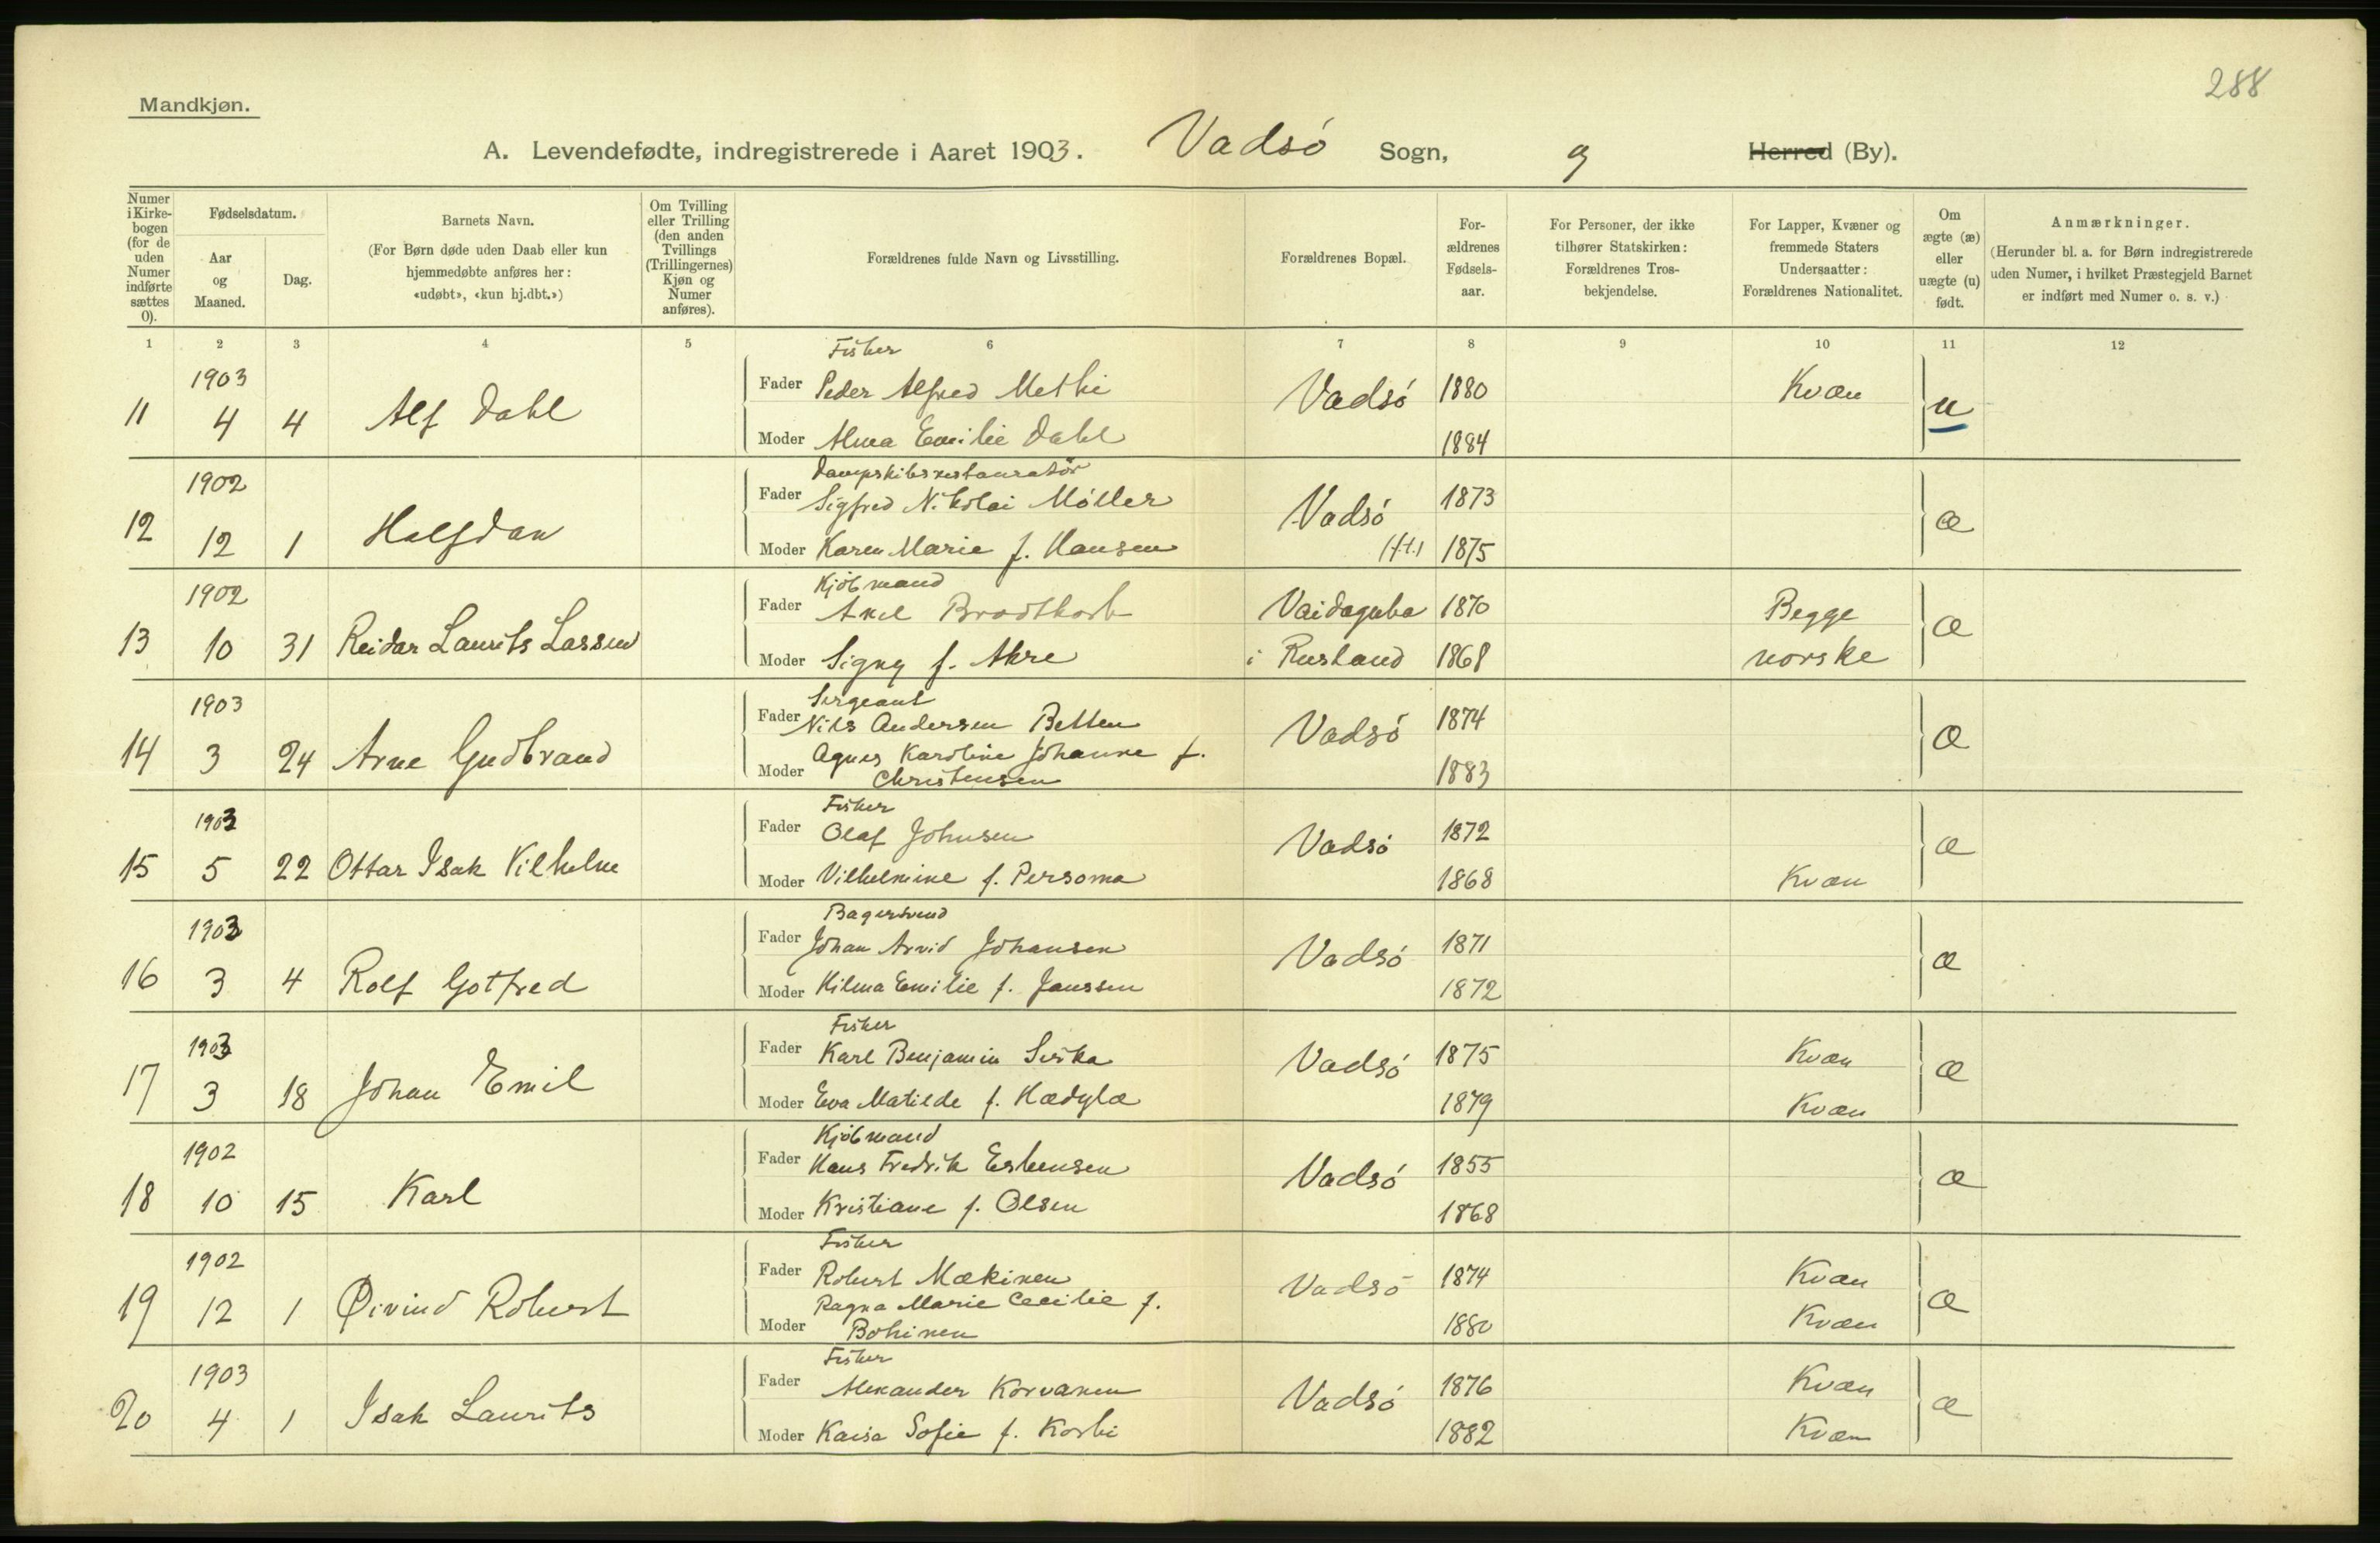 288
Mandkjøn.
A. Levendefødte, indregistrerede i Aaret 1903. Vadsø Sogn, og Herred (By).
Numer i Kirkebogen (for de uden Numer indførte sættes 0).
Fødselsdatum.
Aar og Maaned.
Dag.
Barnets Navn.
(For Børn døde uden Daab eller kun hjemmedøbte anføres her: «udøbt», «kun hj.dbt.»)
Om Tvilling eller Trilling (den anden Tvillings (Trillingernes) Kjøn og Numer anføres).
Forældrenes fulde Navn og Livsstilling.
Forældrenes Bopæl.
Forældrenes Fødselsaar.
For Personer, der ikke tilhører Statskirken: Forældrenes Trosbekjendelse.
For Lapper, Kvæner og fremmede Staters Undersaatter: Forældrenes Nationalitet.
Om ægte (æ) eller uægte (u) født.
Anmærkninger.
(Herunder bl. a. for Børn indregistrerede uden Numer, i hvilket Præstegjeld Barnet er indført med Numer o. s. v.)
1 2 3 4 5 6 7 8 9 10 11 12
1903 Fisker
11 4 4 Alf Dahl Fader Peder Alfred Methi Vadsö 1880 Kvæn u
Moder Alma Emilie Dahl 1884
1902 Dampskibsrestauratör
12 12 1 Halfdan Fader Sigfred Nikolai Möller Vadsö 1873 æ
Moder Karen Marie f. Hansen 1875
1902 Kjöbmand
13 10 31 Reidar Laurits Lassen Fader Axel Brodtkorb Vaidaguba 1870 Begge æ
Moder Signy f. Akre i Rusland 1868 norske
1903 Sergeant
14 3 24 Arne Gudbrand Fader Nils Andersen Betten Vadsö 1874 æ
Moder Agnes Karoline Johanne f. Christensen 1883
1903 Fisker
15 5 22 Ottar Isak Vilhelm Fader Olaf Johnsen Vadsö 1872 æ
Moder Vilhelmine f. Persoma 1868 Kvæn
1903 Bagersvend
16 3 4 Rolf Gotfred Fader Johan Arvid Johansen Vadsö 1871 æ
Moder Hilma Emilie f. Janssen 1872
1903 Fisker
17 3 18 Johan Emil Fader Karl Benjamin Siska Vadsö 1875 Kvæn æ
Moder Eva Matilde f. Hædylæ 1879 Kvæn
1902 Kjöbmand
18 10 15 Karl Fader Hans Fredrik Esbensen Vadsö 1855 æ
Moder Kristiane f. Olsen 1868
1902 Fisker
19 12 1 Øivind Robert Fader Robert Mækinen Vadsö 1874 Kvæn æ
Moder Ragna Marie Cecilie f. Bohinen 1880 Kvæn
1903 Fisker
20 4 1 Isak Laurits Fader Alexander Korvanen Vadsö 1876 Kvæn æ
Moder Kaisa Sofie f. Koski 1882 Kvæn